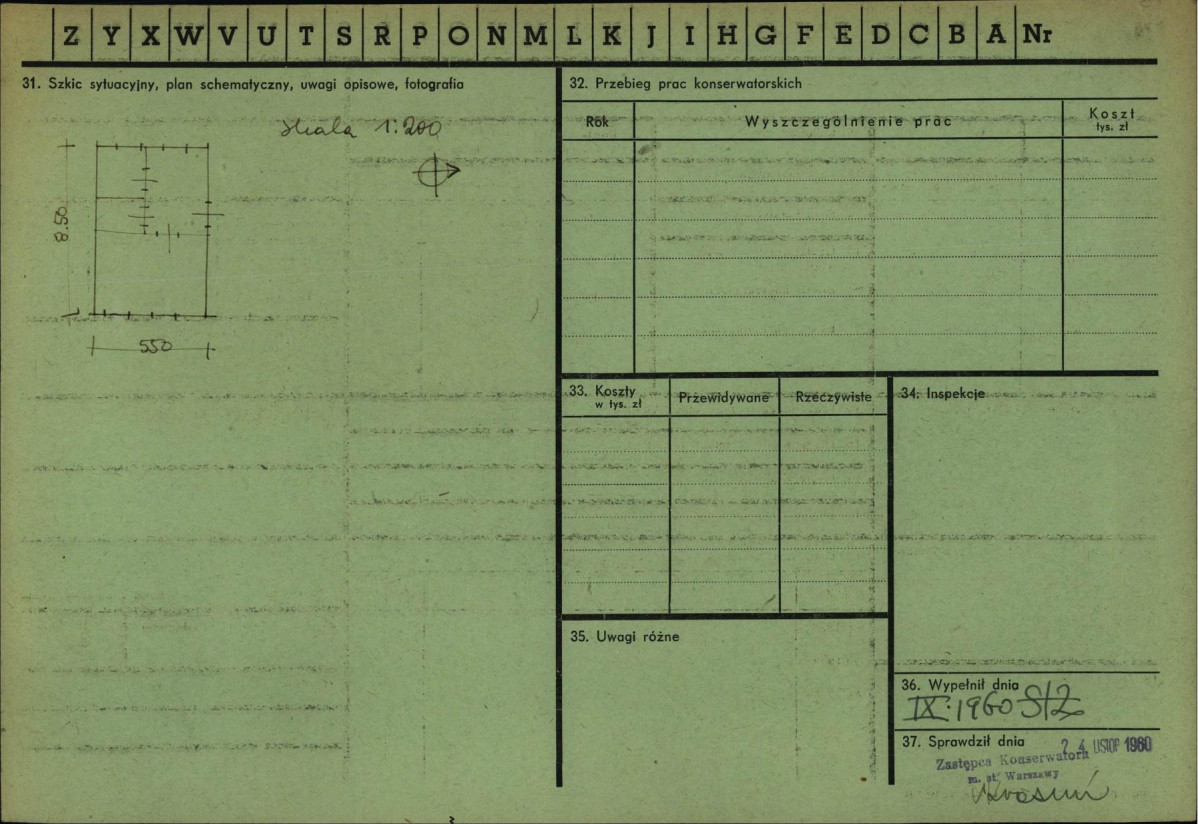 Z Y X W V U T S R P O N M L K J I H G F E D C B A Nr
31. Szkic sytuacyjny, plan schematyczny, uwagi opisowe, fotografia
skala 1:200
8.50
550
32. Przebieg prac konserwatorskich
Rok Wyszczególnienie prac Koszt
tys. zł
33. Koszty
w tys. zł
Przewidywane Rzeczywiste
34. Inspekcje
35. Uwagi różne
36. Wypełnił dnia
IX.1960
37. Sprawdził dnia
24 LISTOP 1960
Zastępca Konserwatora
m. st. Warszawy